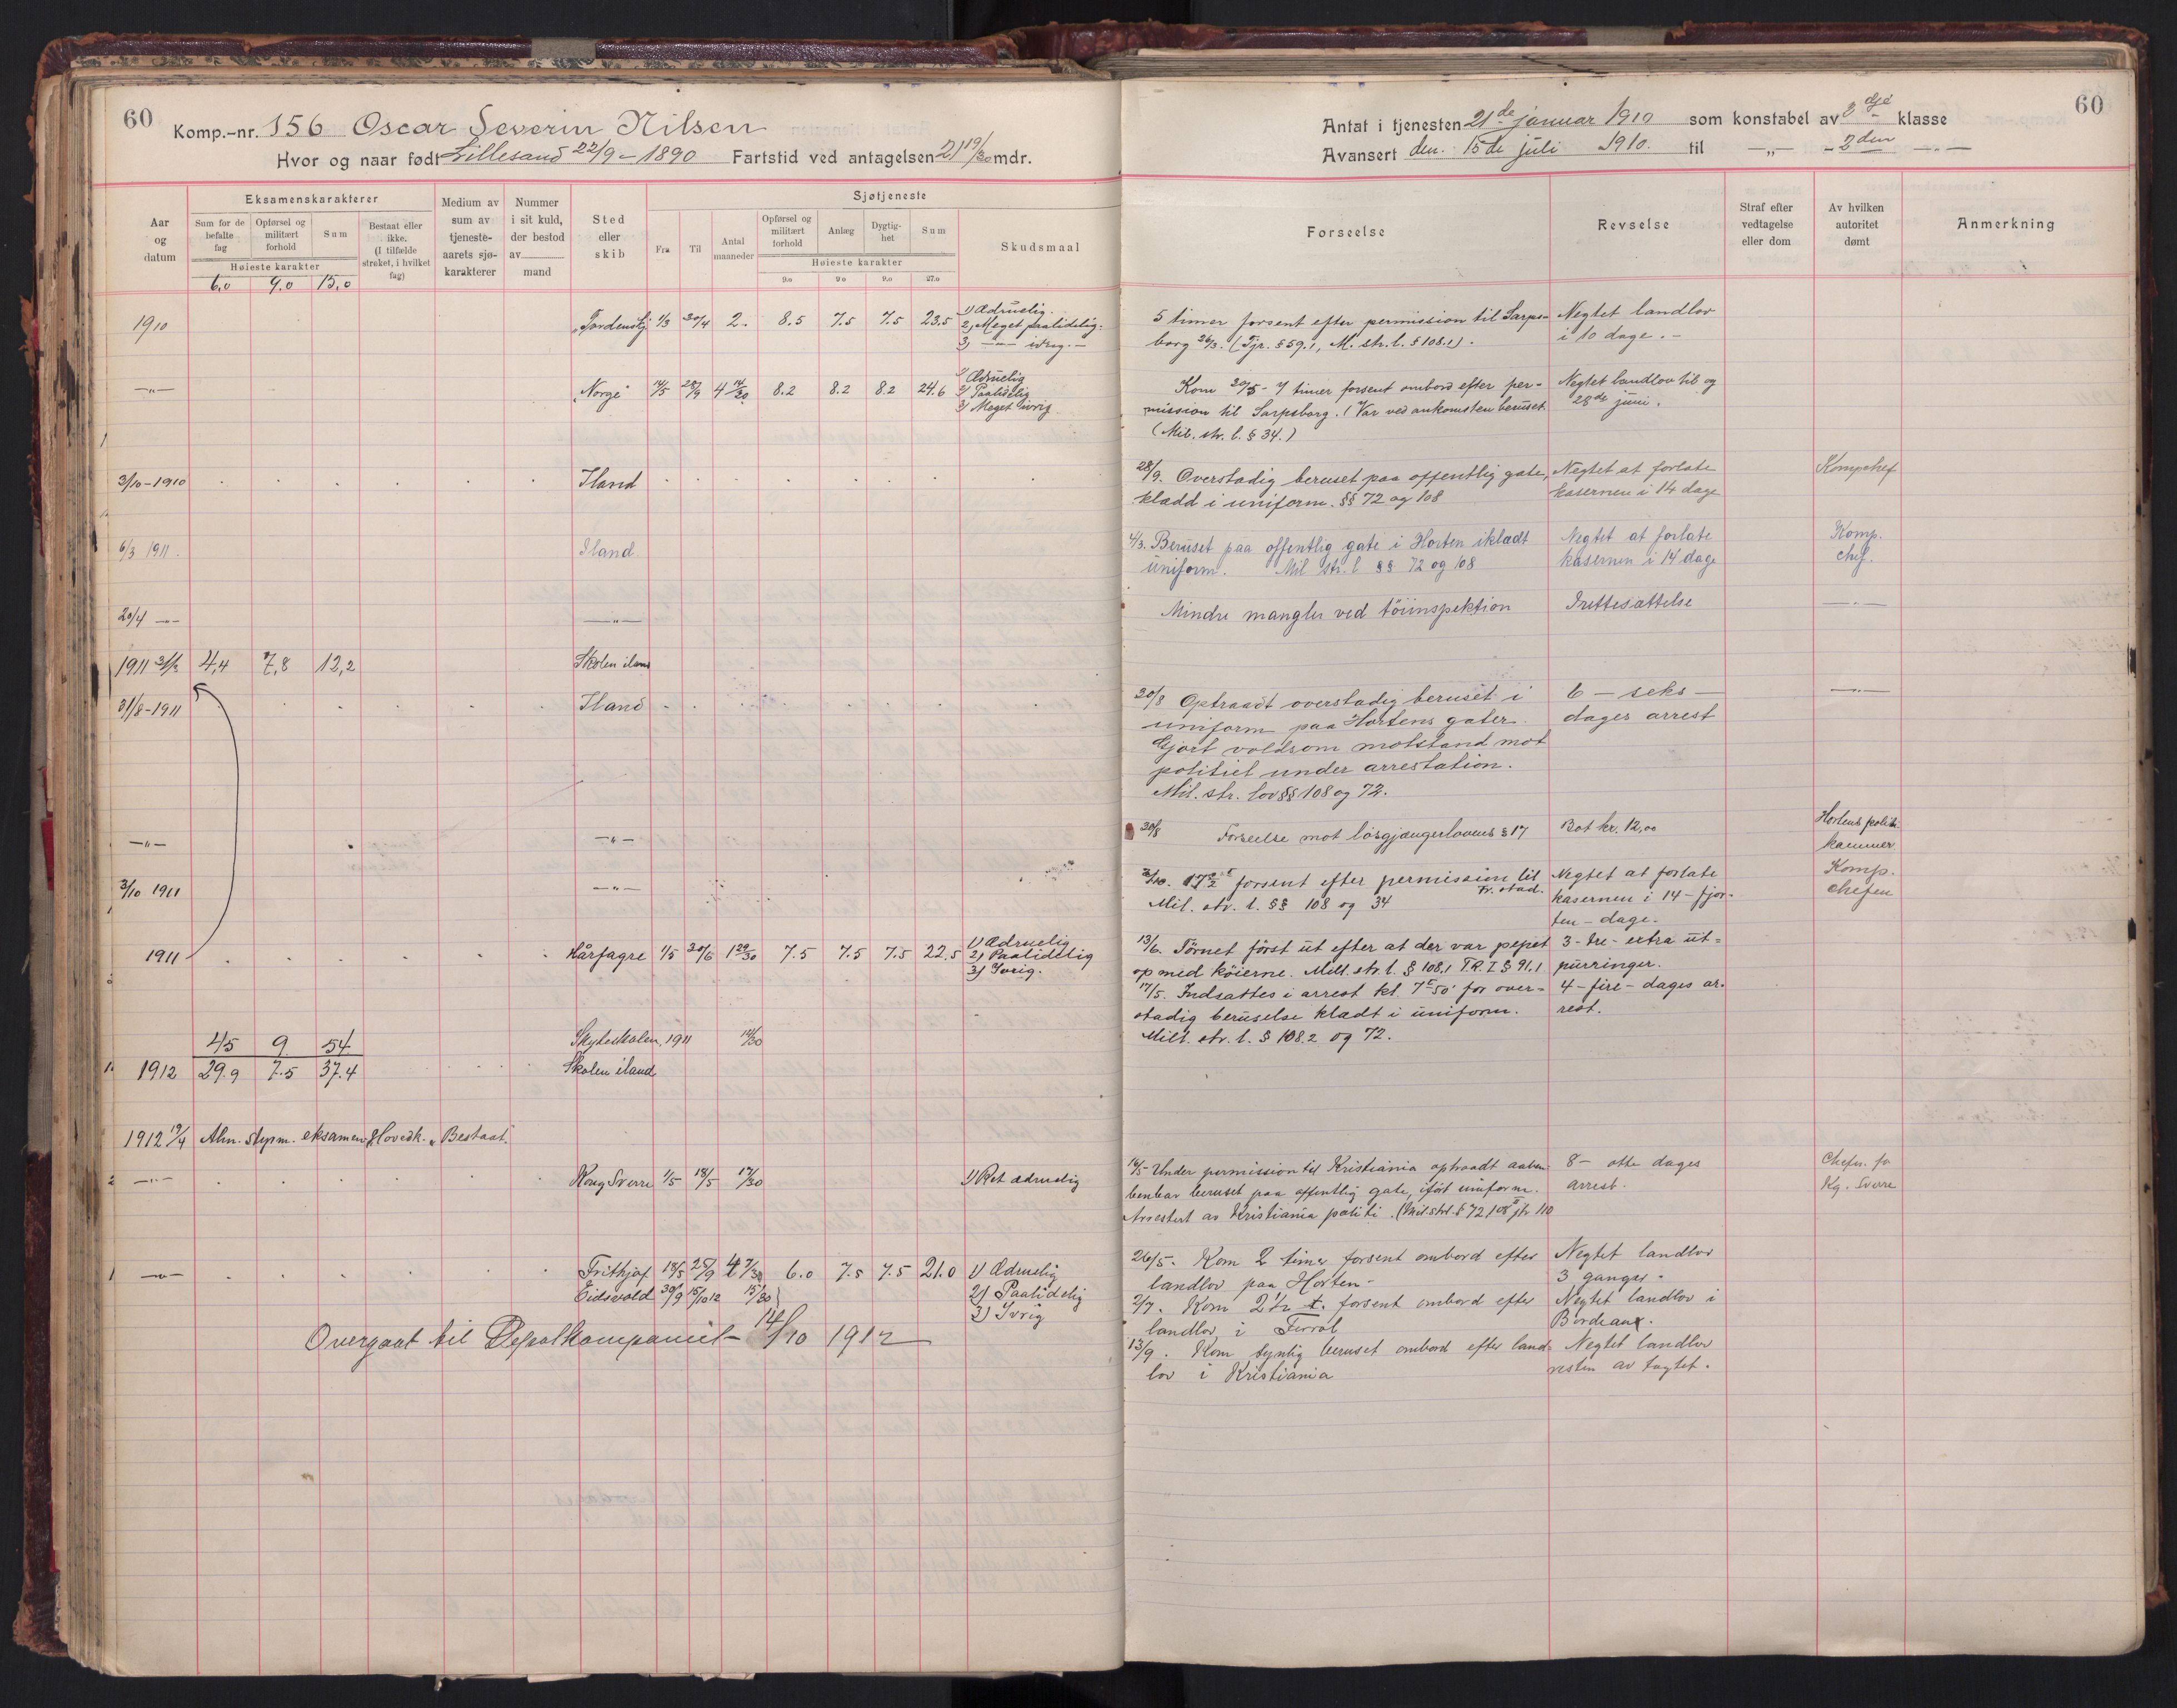 60
Komp.-nr. 156 Oscar Severin Nilsen
Hvor og naar født Lillesand 22/9 - 1890 Fartstid ved antagelsen 21 19/30 mdr.
Aar og datum
Eksamenskarakterer
Sum for de befalte fag
Opførsel og militært forhold
Sum
Bestaat eller ikke. (I tilfælde strøket, i hvilket fag)
Høieste karakter
6,0 9.0 15,0
Medium av sum av tjeneste-aarets sjø-karakterer
Nummer i sit kuld, der bestod av mand
Sted eller skib
Sjøtjeneste
Fra
Til
Antal maaneder
Opførsel og militært forhold
Anlæg
Dygtig-het
Sum
Høieste karakter
9.0 9.0 9.0 27.0
Skudsmaal
1910 „Tordenskj. 1/3 30/4 2. 8.5 7.5 7.5 23.5 1) Ædruelig.
2) Meget paalidelig.
3) —„— ivrig.-
—„— „Norge" 14/5 28/9 4 14/30 8.2 8.2 8.2 24.6 1) Ædruelig
2) Paalidelig
3) Meget ivrig
3/10-1910 Iland
6/3 1911. Iland
20/4 —„— —„—
1911 31/3 4,4 7,8 12,2 Skolen iland
31/8-1911 Iland
—„— —„—
3/10 1911 —„—
1911 Hårfagre 1/5 30/6 1 29/30 7.5 7.5 7.5 22.5 1) Ædruelig
2) Paalidelig
3) Ivrig.
45 9 54 Skyteskolen, 1911 14/30
1912 29.9 7.5 37.4 Skolen iland
1912 19/4 Alm. styrm. eksamen, Hovedk. „Bestaat."
—„— Kong Sverre 1/5 18/5 17/30 1) Ret ædruelig
—„— Frithjof 18/5 25/9 4 7/30 6.0 7.5 7.5 21.0 1) Ædruelig
Eidsvold 30/9 15/10 12 15/30 2) Paalidelig
3) Ivrig
Overgaat til Depotkompaniet 14/10 1912
60
Antat i tjenesten 21de januar 1910 som konstabel av 3dje klasse
Avansert den. 15de juli 1910. til —„— - 2den —„—
Forseelse
Revselse
Straf efter vedtagelse eller dom
Av hvilken autoritet dømt
Anmerkning
5 timer forsent efter permission til Sarps- Negtet landlov
borg 26/3. (Tjr. §59.1, M. str. l. §108.1). i 10 dage. -
Kom 20/5 - 7 timer forsent ombord efter per- Negtet landlov til og
mission til Sarpsborg. (Var ved ankomsten beruset. 28de juni.
(Mil. str. l. § 34.)
28/9. Overstadig beruset paa offentlig gate, Negtet at forlate Kompchef
klædd i uniform. §§ 72 og 108 kasernen i 14 dage
4/3. Beruset paa offentlig gate i Horten iklædt Negtet at forlate Komp.
uniform. Mil str. l §§ 72 og 108 kasernen i 14 dage chef.
Mindre mangler ved töiinspektion Irettesættelse —„—
30/8 Optraadt overstadig beruset i 6 - seks - —„—
uniform paa Hortens gater. dages arrest
Gjort voldsom motstand mot
politiet under arrestation.
Mil. str. lov §§ 108 og 72.
30/8 Forseelse mot løsgjængerlovens § 17 Bot kr. 12,00 Hortens politi-
kammer
forsent efter permission til Negtet at forlate Komp.
Fr. stad. kasernen i 14 - fjor- chefen
Mil. str. l. §§ 108 og 34 ten - dage.
13/6. Törnet först ut efter at der var pepet 3 - tre - extra ut-
op med köierne. Milt. str. l. § 108,1 T.R. I § 91,1 purringer.
17/5. Indsattes i arrest kl. 7 50 for over- 4 - fire - dages ar-
stadig beruselse klædt i uniform. rest.
Milt. str. l. § 108.2 og 72.
16/5 - Under permission til Kristiania optraadt aaben- 8 - otte dages Chefen. fo
benbar beruset paa offentlig gate, ifört uniform. arrest. Kg. Sverre
Arrestert av Kristiania politi. (Mil. strl. § 72, 108 II jfr 110
26/5 - Kom 2 timer forsent ombord efter Negtet landlov
landlov paa Horten - 3 ganger.
2/7. Kom 2 1/2 t. forsent ombord efter Negtet landlov i
landlov i Ferrol Bordeaux.
13/9. Kom synlig beruset ombord efter land- Negtet landlov
lov i Kristiania resten av togtet.